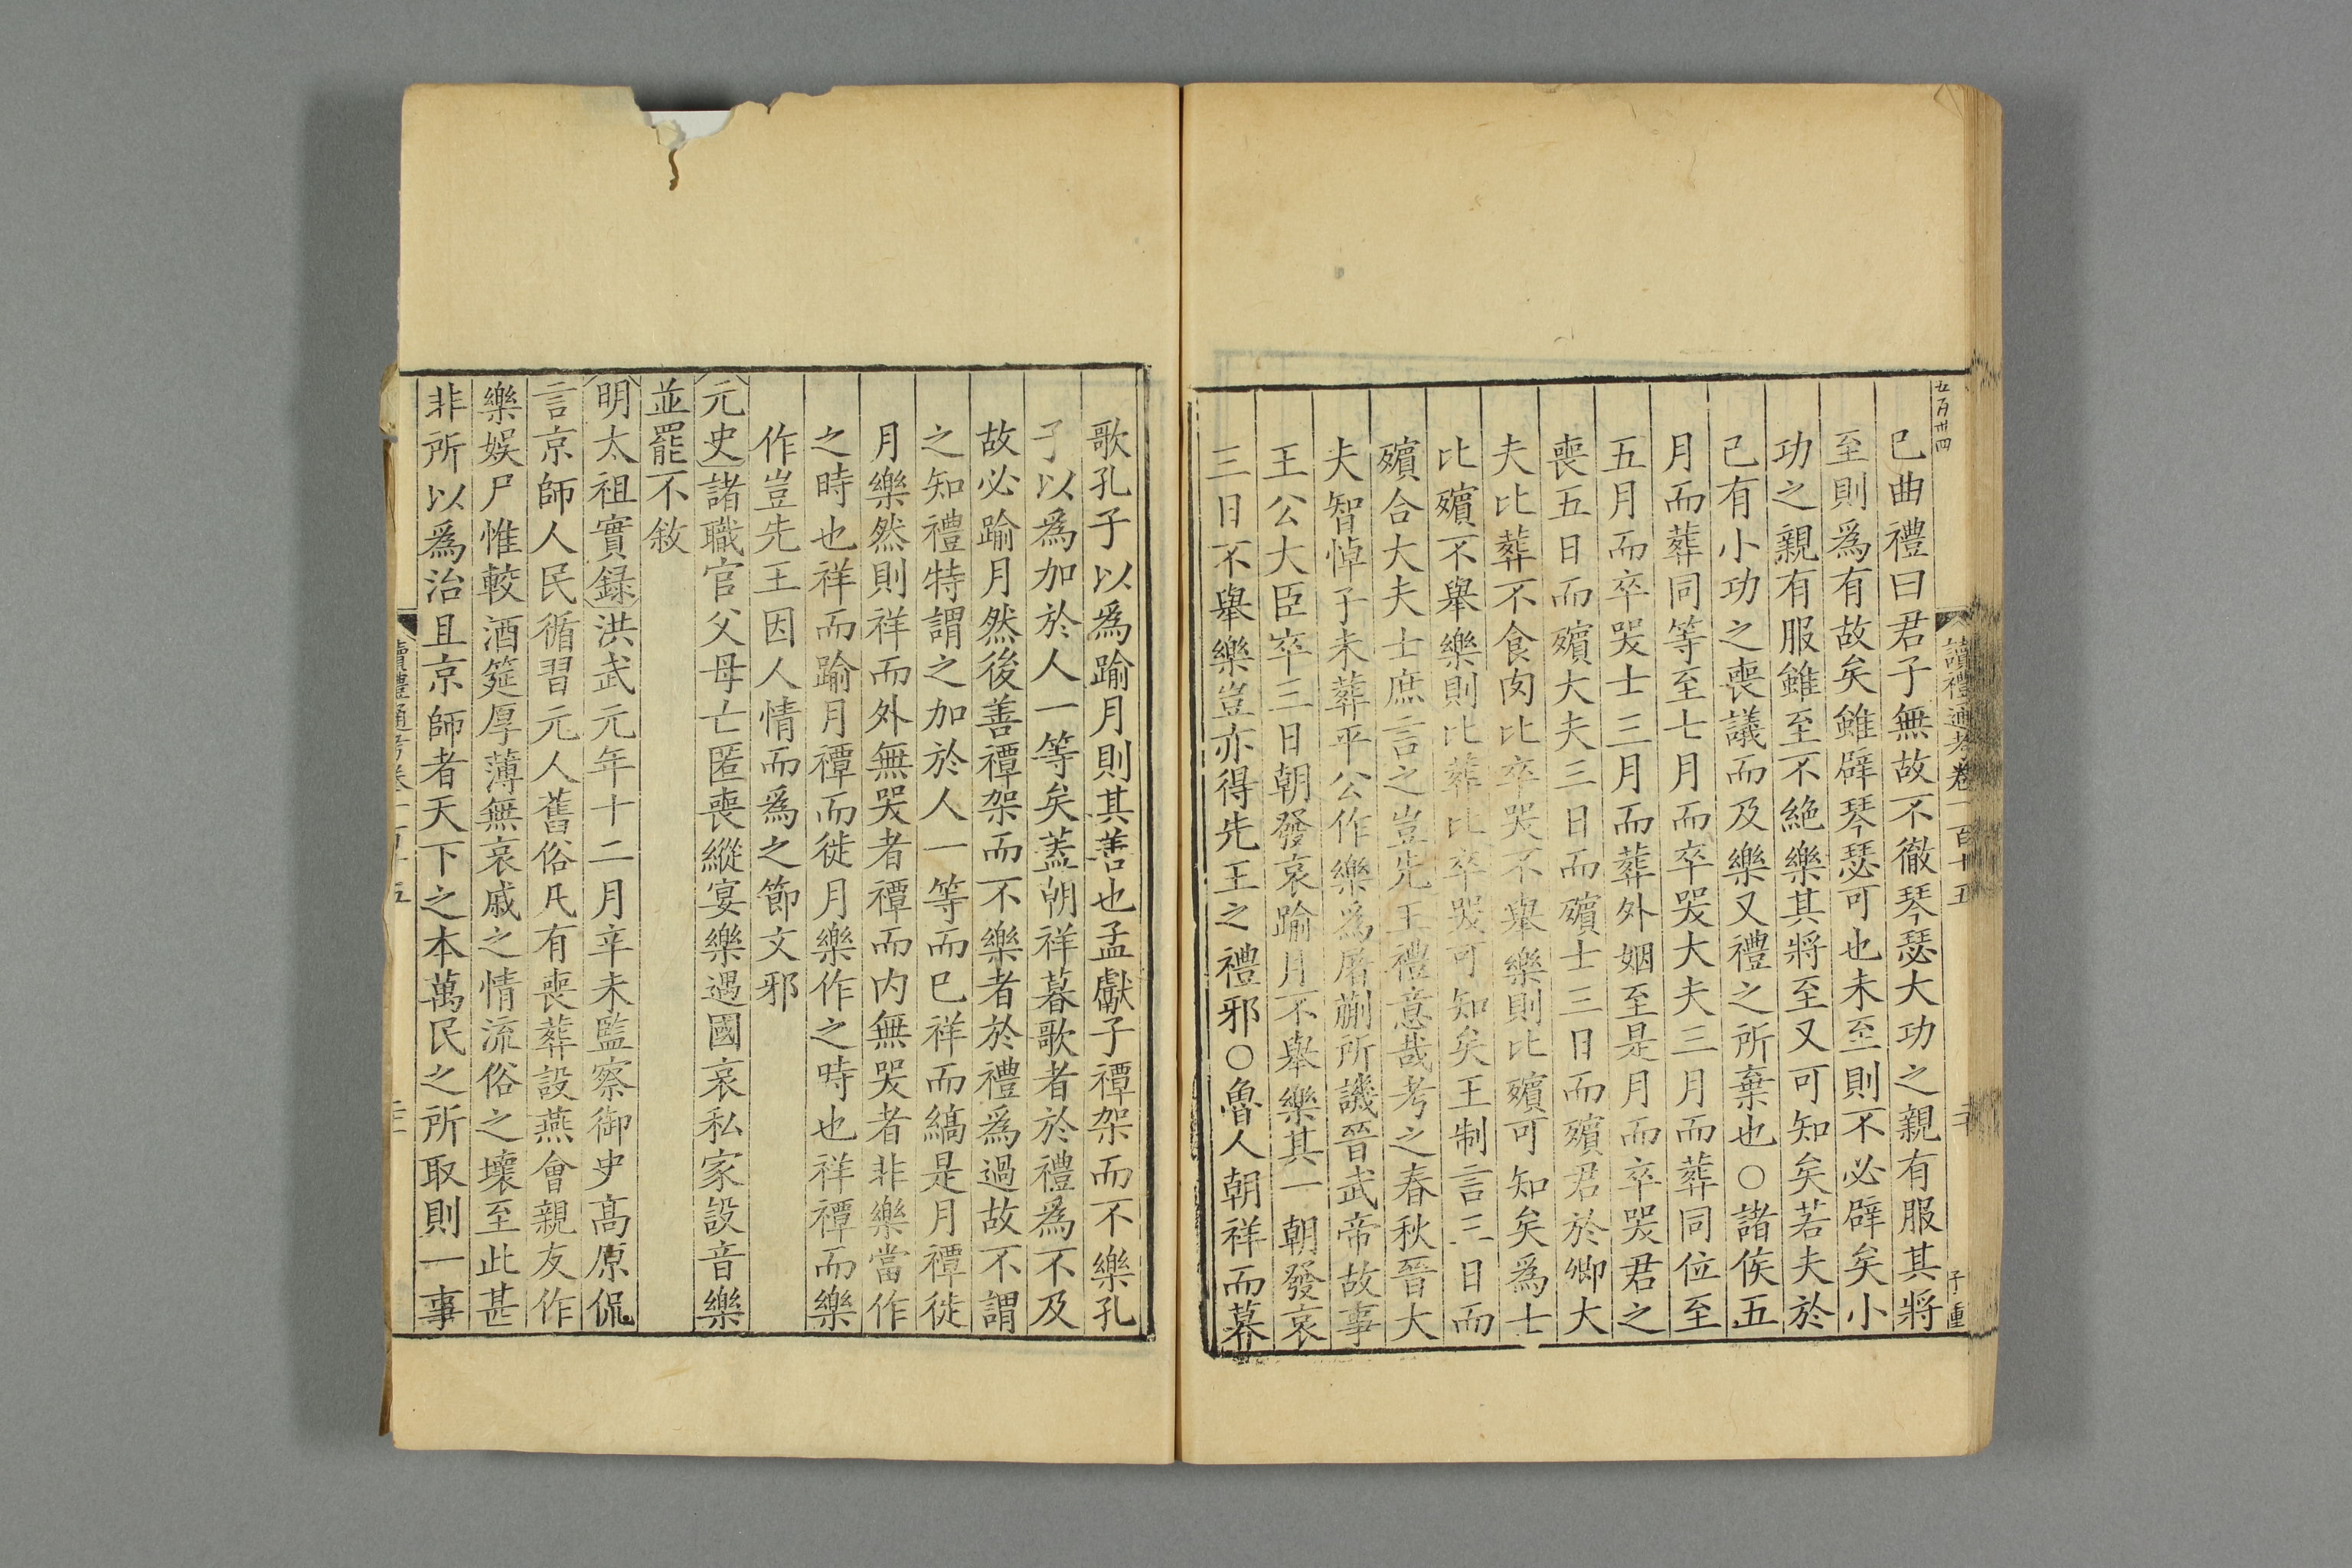 五百卅四
讀禮通考卷一百十五
二十
子重
已曲禮曰君子無故不徹琴瑟大功之親有服其將
至則爲有故矣雖辟琴瑟可也未至則不必辟矣小
功之親有服雖至不絶樂其將至又可知矣若夫於
已有小功之喪議而及樂又禮之所棄也○諸侯五
月而葬同等至七月而卒哭大夫三月而葬同位至
五月而卒哭士三月而葬外姻至是月而卒哭君之
喪五日而殯大夫三日而殯士三日而殯君於卿大
夫比葬不食肉比卒哭不舉樂則比殯可知矣爲士
比殯不舉樂則比葬比卒哭可知矣王制言三日而
殯合大夫士庶言之豈先王禮意哉考之春秋晉大
夫智悼子未葬平公作樂爲屠蒯所譏晉武帝故事
王公大臣卒三日朝發哀踰月不舉樂其一朝發哀
三日不舉樂豈亦得先王之禮邪○魯人朝祥而暮
歌孔子以爲踰月則其善也孟獻子禫架而不樂孔
子以爲加於人一等矣蓋朝祥暮歌者於禮爲不及
故必踰月然後善禫架而不樂者於禮爲過故不謂
之知禮特謂之加於人一等而已祥而縞是月禫徙
月樂然則祥而外無哭者禫而内無哭者非樂當作
之時也祥而踰月禫而徙月樂作之時也祥禫而樂
作豈先王因人情而爲之節文邪
元史諸職官父母亡匿喪縱宴樂遇國哀私家設音樂
並罷不敘
明太祖實録洪武元年十二月辛未監察御史高原侃
言京師人民循習元人舊俗凡有喪葬設燕會親友作
樂娱尸惟較酒筵厚薄無哀戚之情流俗之壞至此甚
非所以爲治且京師者天下之本萬民之所取則一事
讀禮通考卷一百十五